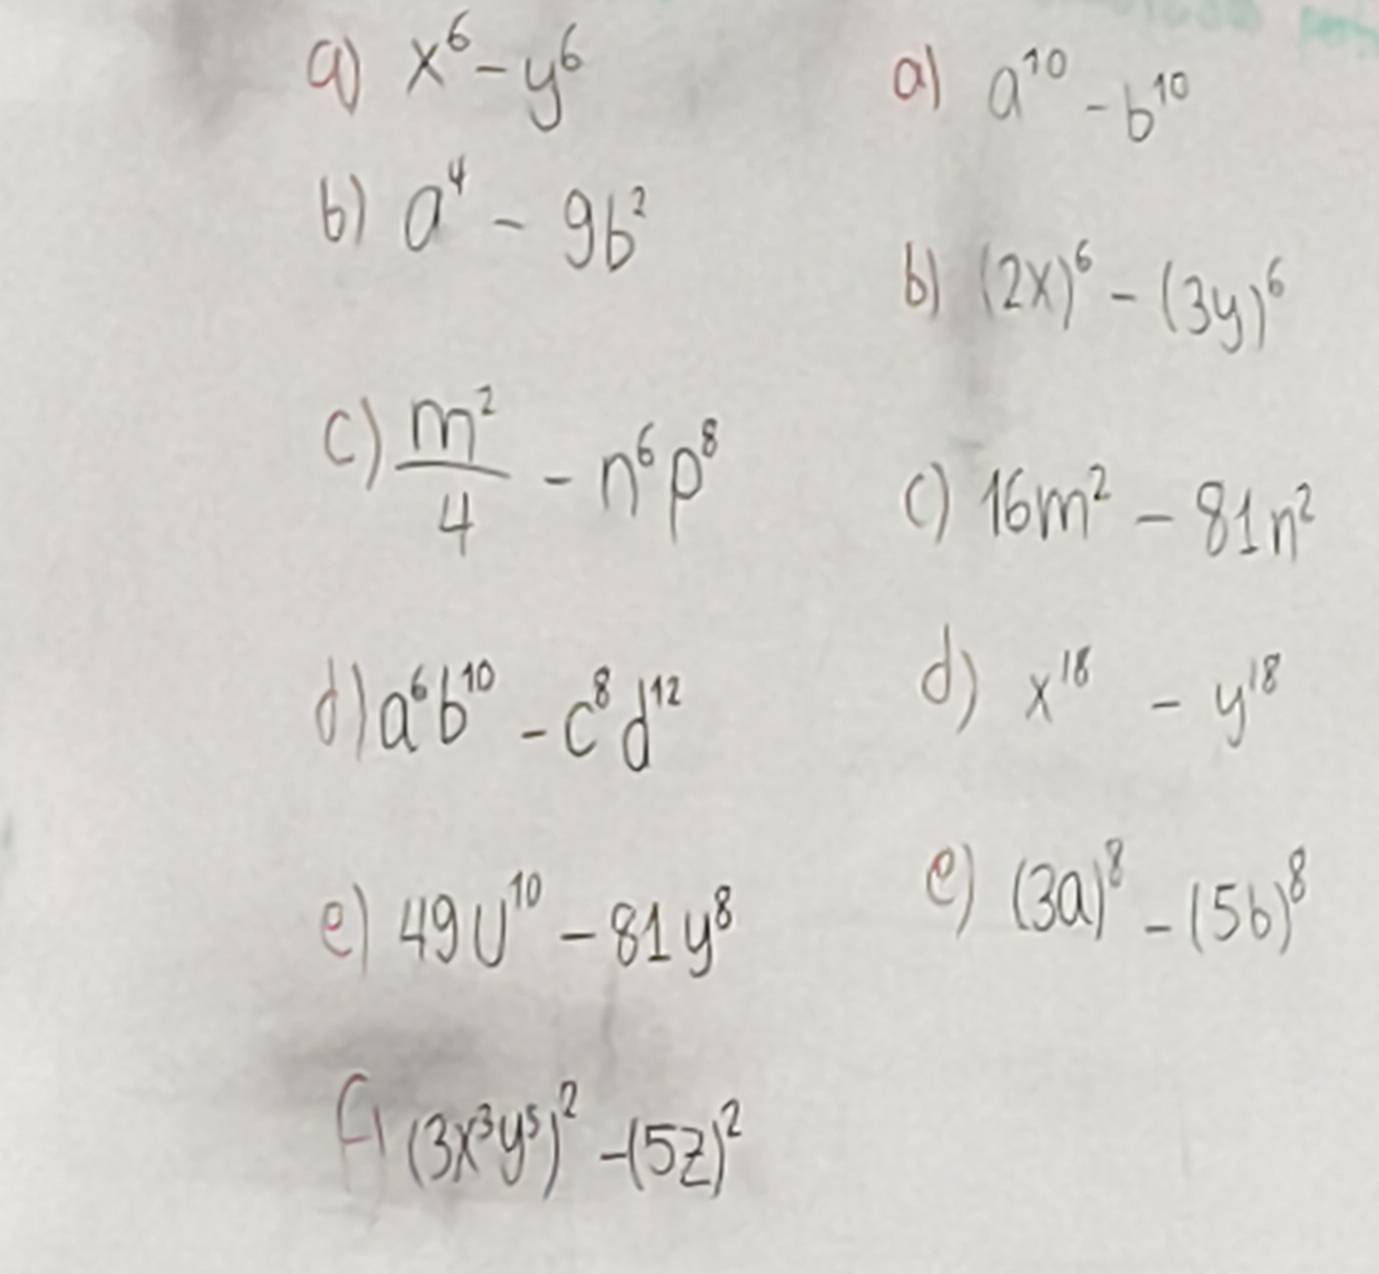 a) x⁶ - y⁶
b) a⁴ - 9b²
c) m²/4 - n⁶p⁸
d) a⁶b¹⁰ - c⁸d¹²
e) 49U¹⁰ - 81y⁸
f) (3x³y⁵)² - (5z)²
a) a¹⁰ - b¹⁰
b) (2x)⁶ - (3y)⁶
c) 16m² - 81n²
d) x¹⁸ - y¹⁸
e) (3a)⁸ - (5b)⁸